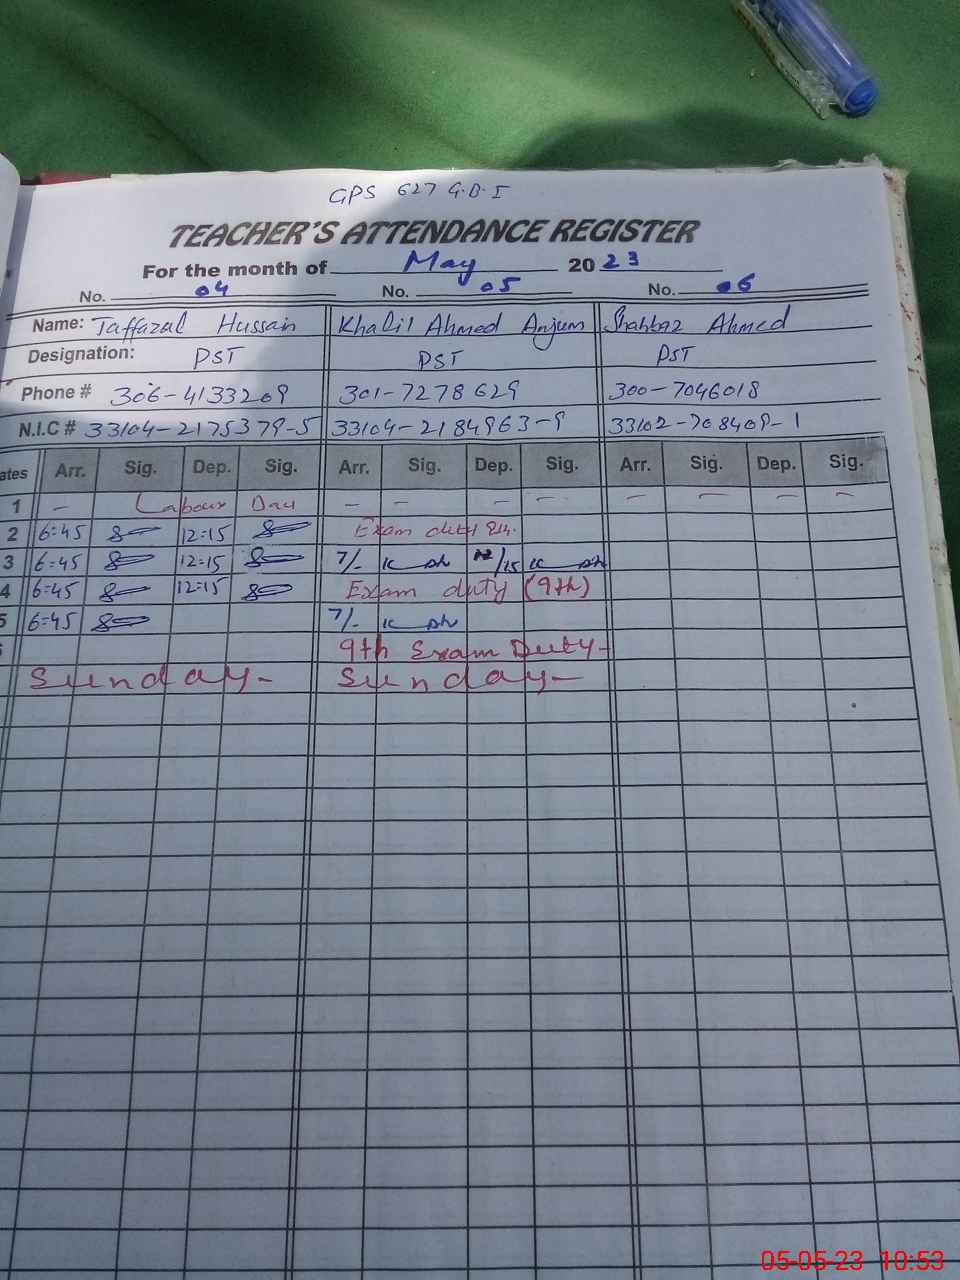 GPS 627 G.B I
TEACHER'S ATTENDANCE REGISTER
For the month of May 2023
No. 04 No. 05 No. 06
Name: Taffazal Hussain Khalil Ahmed Anjum Shahbaz Ahmed
Designation: PST PST PST
Phone # 306-4133209 301-7278629 300-7046018
N.I.C # 33104-2175379-5 33104-2184963-9 33102-708409-1
ates Arr. Sig. Dep. Sig. Arr. Sig. Dep. Sig. Arr. Sig. Dep. Sig.
1 - Labour Day - - - - - - - -
2 6:45 12:15 Exam duty 9th.
3 6:45 12:15 7/- 12/15
4 6:45 12:15 Exam duty (9th)
5 6:45 7/-
9th Exam Duty-
Sunday- Sunday-
05-05-23 10:53